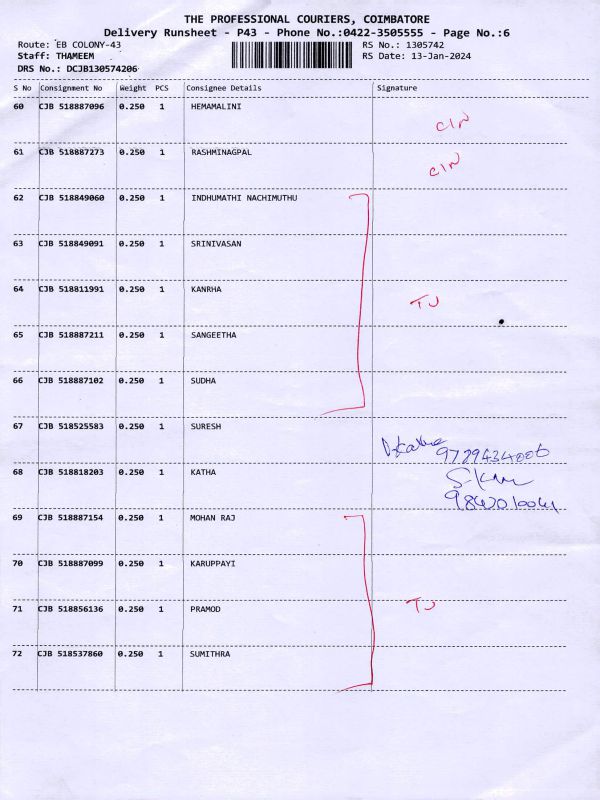 THE PROFESSIONAL COURIERS, COIMBATORE
Delivery Runsheet - P43 - Phone No.:0422-3505555 - Page No.:6
Route: EB COLONY-43 RS No.: 1305742
Staff: THAMEEM RS Date: 13-Jan-2024
DRS No.: DCJB130574206
S No Consignment No Weight PCS Consignee Details Signature
60 CJB 518887096 0.250 1 HEMAMALINI
CIN
61 CJB 518887273 0.250 1 RASHMINAGPAL
CIN
62 CJB 518849060 0.250 1 INDHUMATHI NACHIMUTHU
63 CJB 518849091 0.250 1 SRINIVASAN
64 CJB 518811991 0.250 1 KANRHA
TJ
65 CJB 518887211 0.250 1 SANGEETHA
66 CJB 518887102 0.250 1 SUDHA
67 CJB 518525583 0.250 1 SURESH
68 CJB 518818203 0.250 1 KATHA
69 CJB 518887154 0.250 1 MOHAN RAJ
70 CJB 518887099 0.250 1 KARUPPAYI
71 CJB 518856136 0.250 1 PRAMOD TJ
72 CJB 518537860 0.250 1 SUMITHRA